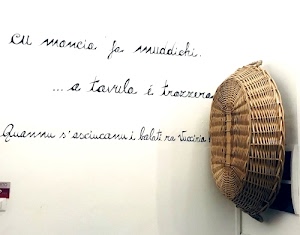 cu mancia fa muddichi.
...a tavula è trazzera
Quannu s'asciucanu i balati ra Vucciria